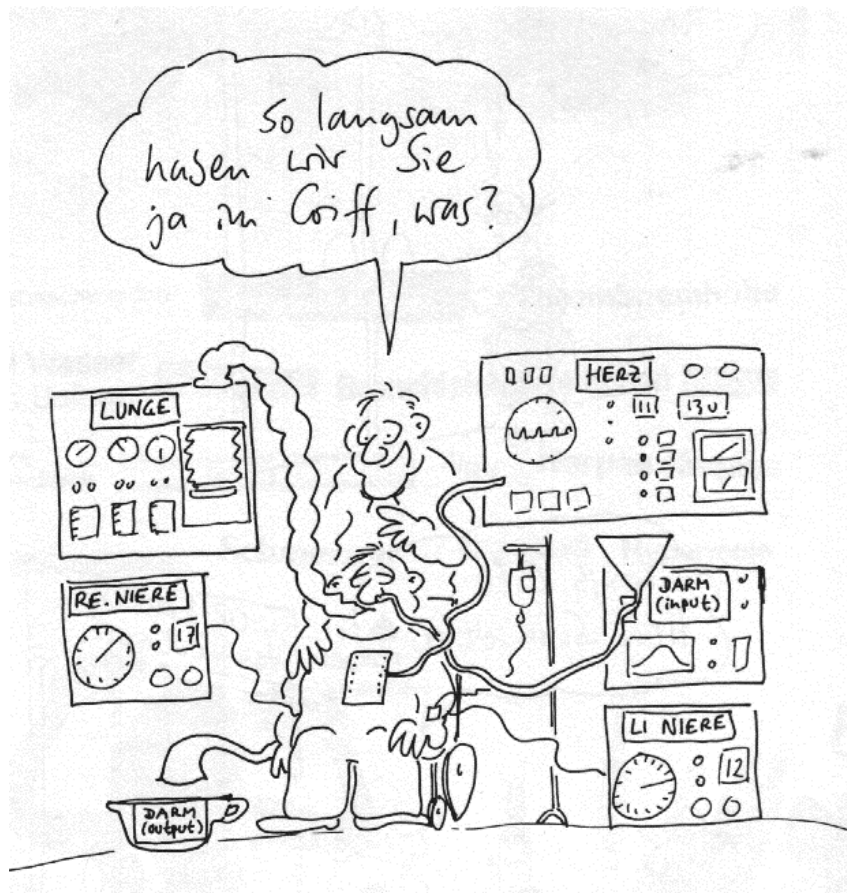 So langsam
haben wir Sie
ja im Griff, was?
LUNGE
HERZ
130
RE. NIERE
17
DARM
(input)
LI NIERE
12
DARM
(output)